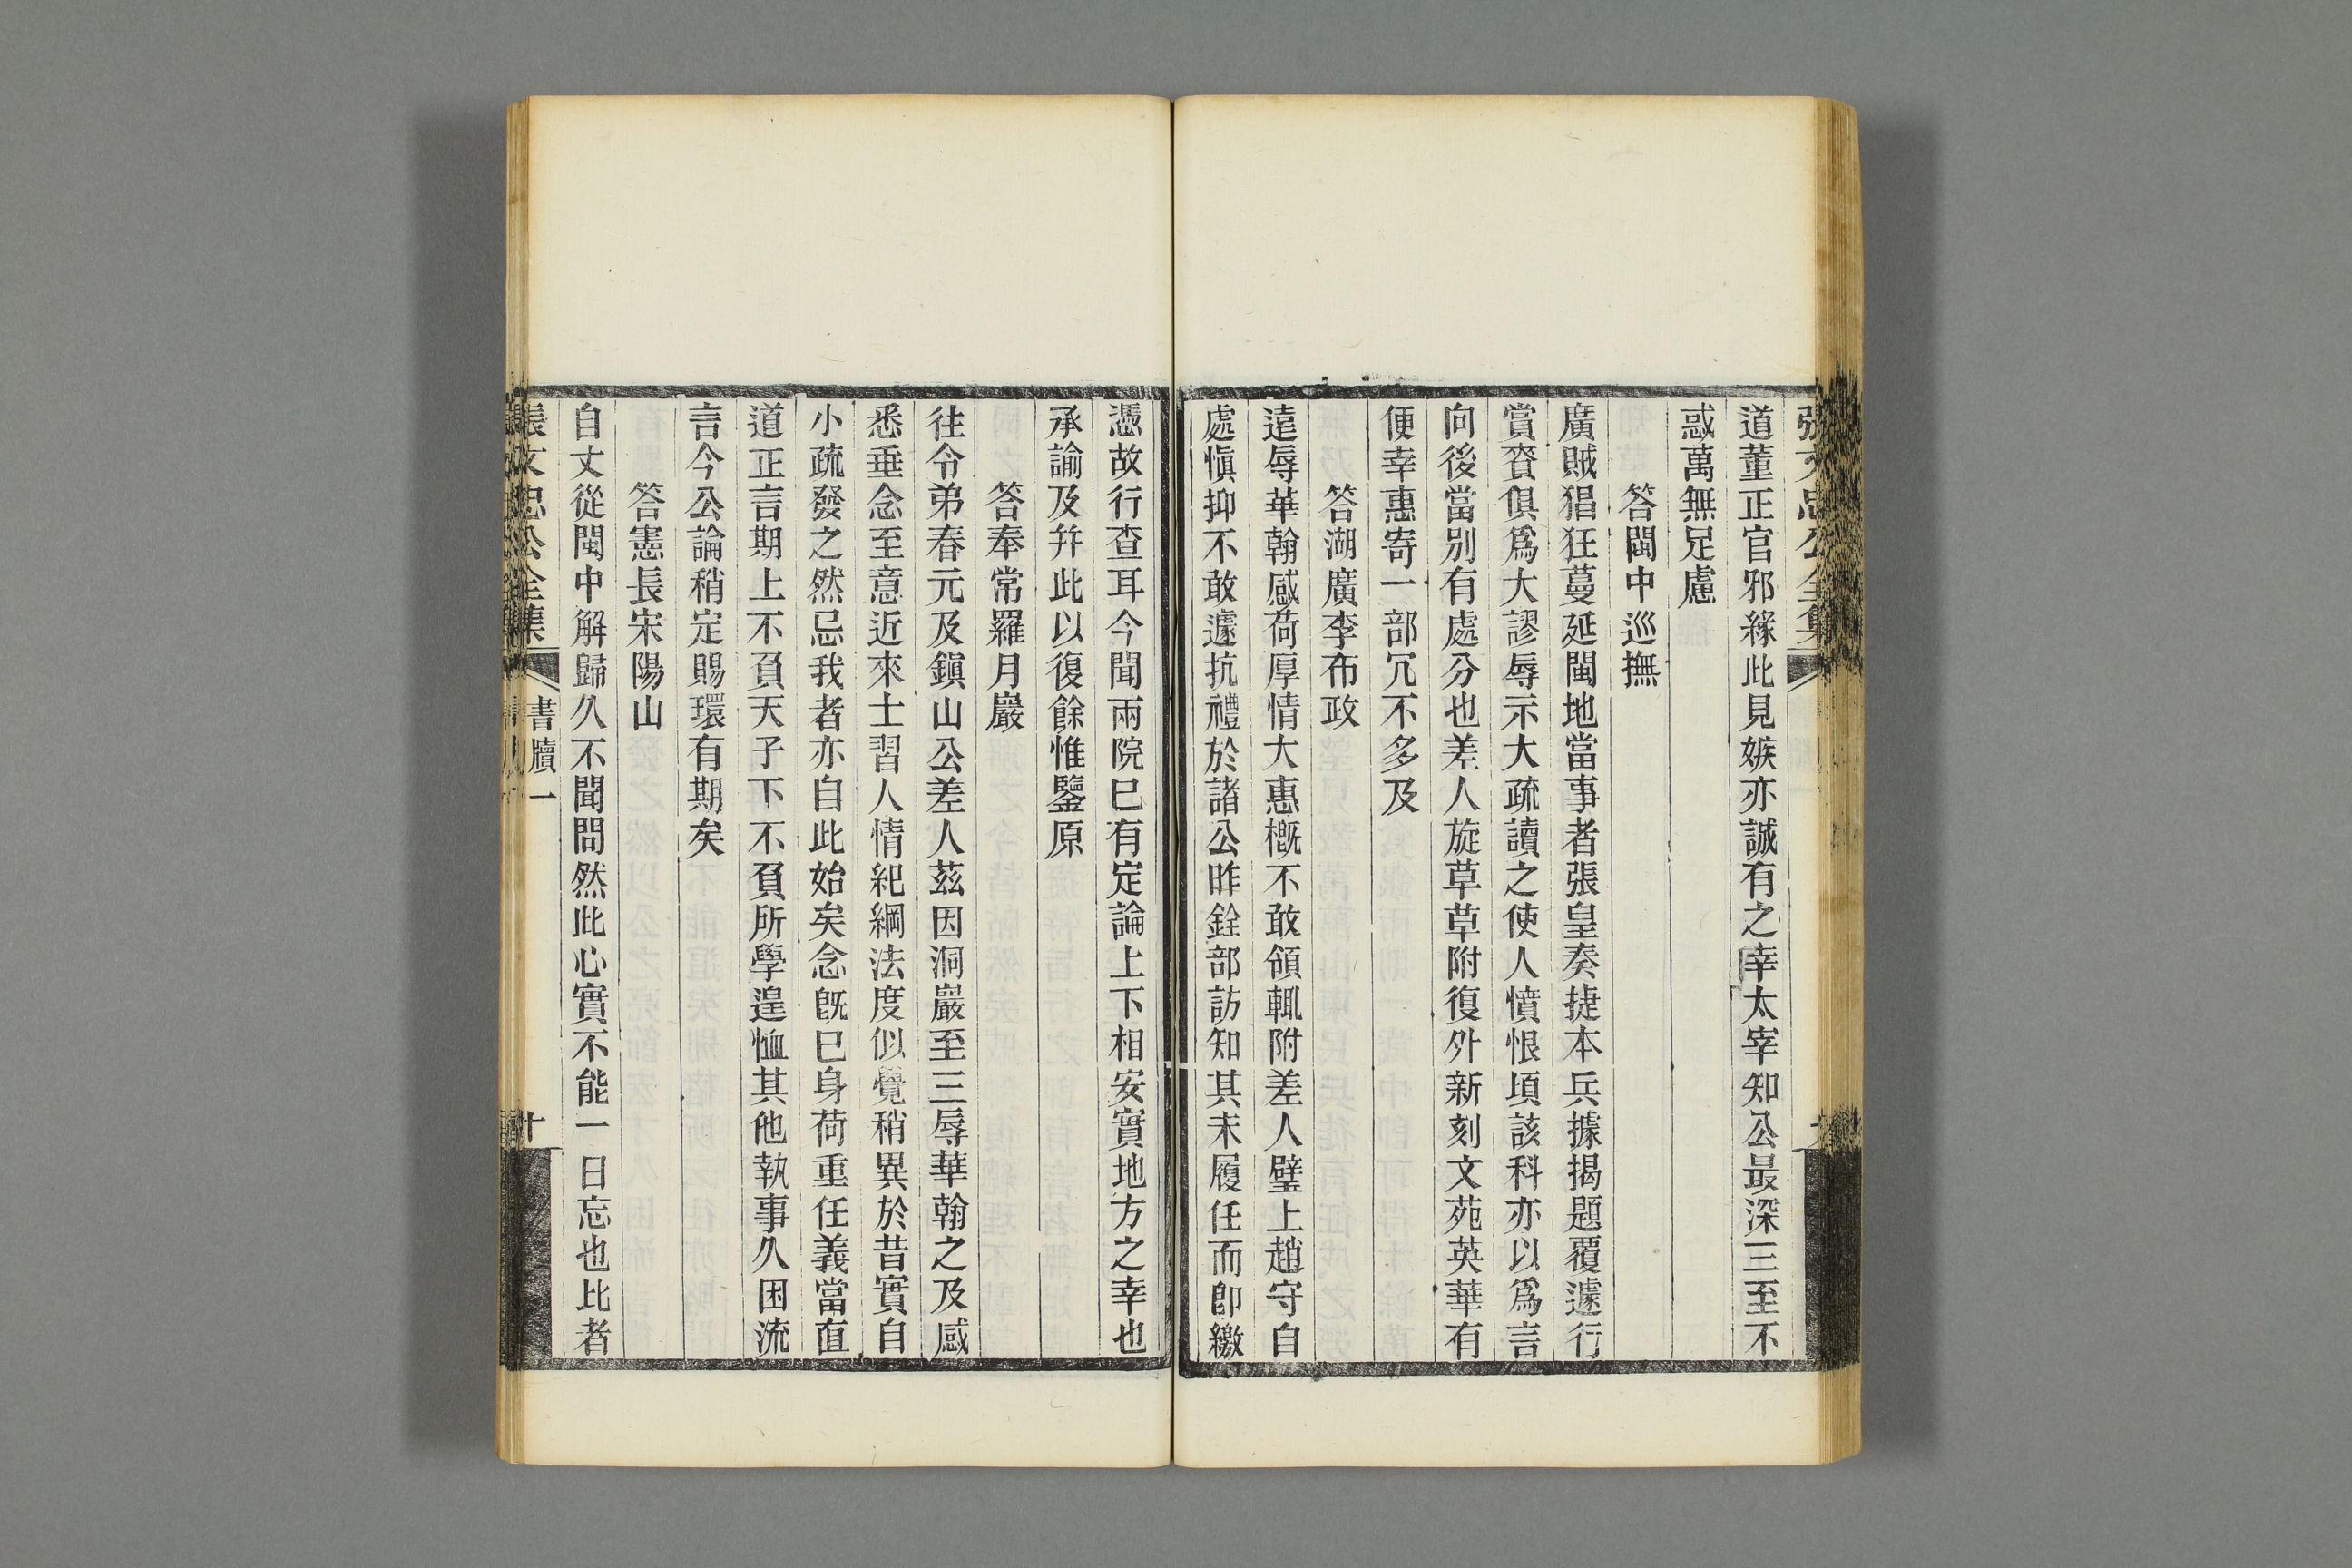 張文忠公全集
道董正官邪緣此見嫉亦誠有之幸太宰知公最深三至不
惑萬無足慮
答閩中巡撫
廣賊猖狂蔓延閩地當事者張皇奏捷本兵據揭題覆遽行
賞賚俱爲大謬辱示大疏讀之使人憤恨頃該科亦以爲言
向後當别有處分也差人旋草草附復外新刻文苑英華有
便幸惠寄一部冗不多及
答湖廣李布政
遠辱華翰感荷厚情大惠槪不敢領輒附差人璧上趙守自
處愼抑不敢遽抗禮於諸公昨銓部訪知其未履任而卽繳
憑故行查耳今聞兩院已有定論上下相安實地方之幸也
承諭及幷此以復餘惟鑒原
答奉常羅月巖
往令弟春元及鎭山公差人茲因洞巖至三辱華翰之及感
悉垂念至意近來士習人情紀綱法度似覺稍異於昔實自
小疏發之然忌我者亦自此始矣念旣已身荷重任義當直
道正言期上不負天子下不負所學遑恤其他執事久困流
言今公論稍定賜環有期矣
答憲長宋陽山
自丈從閩中解歸久不聞問然此心實不能一日忘也比者
張文忠公全集
書牘一
十